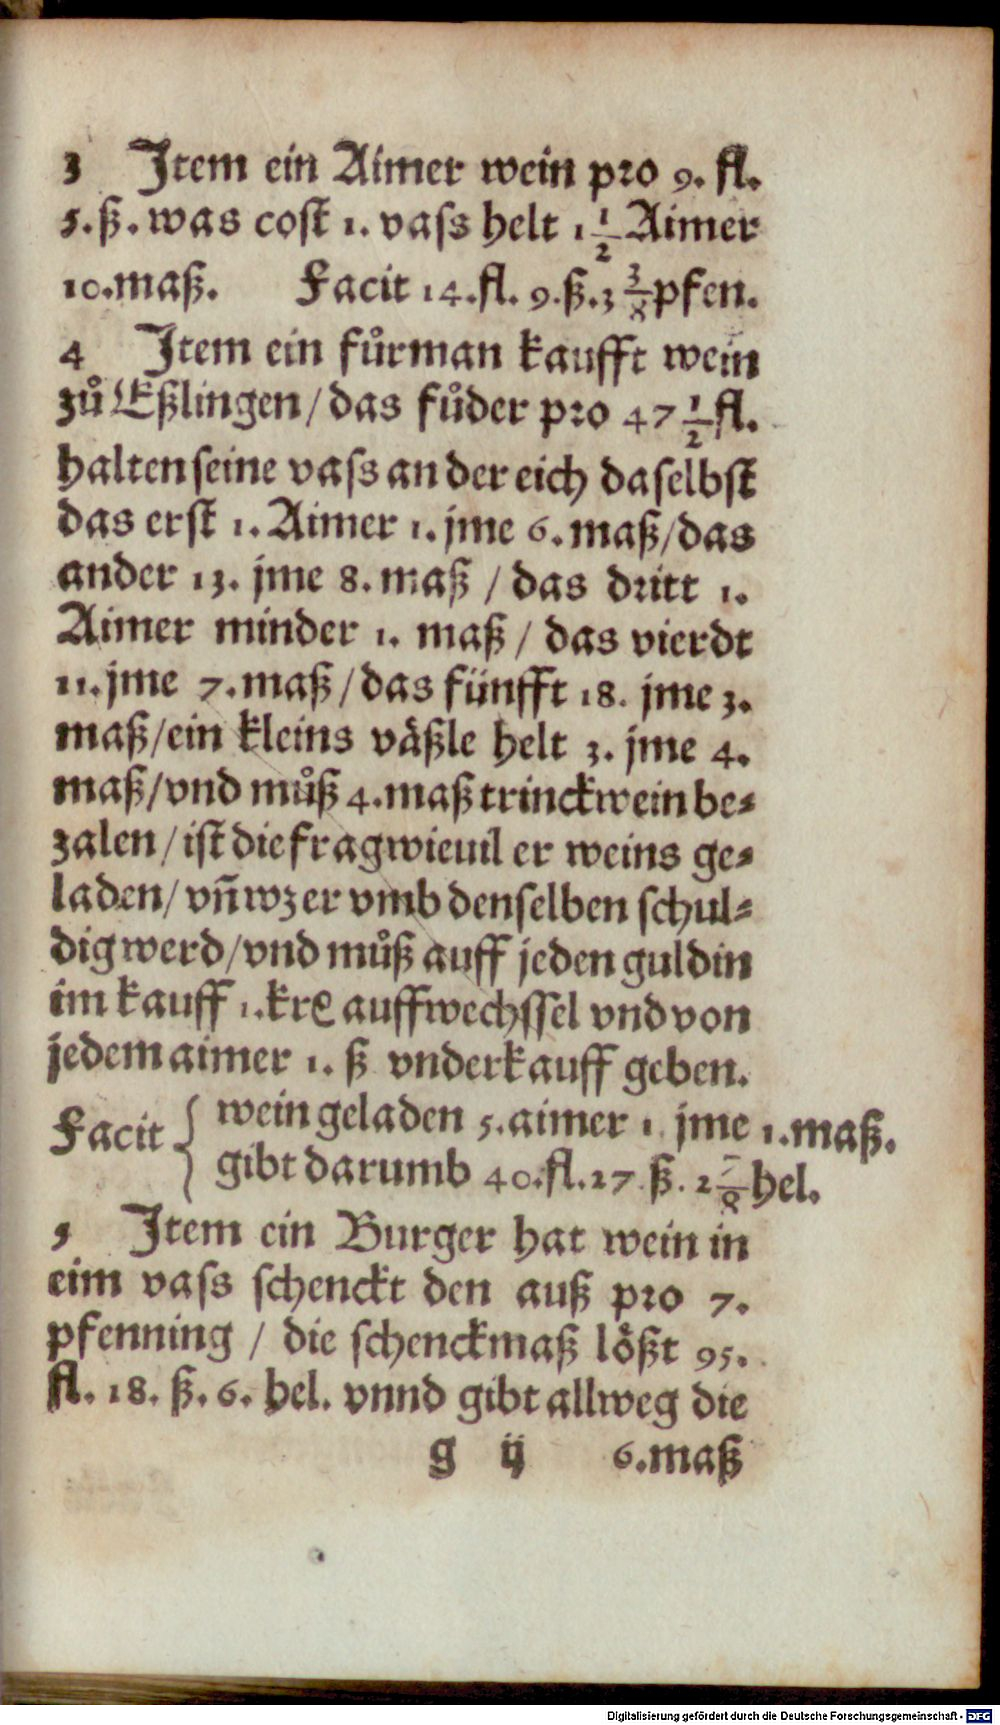 3 Item ein Aimer wein pro 9. fl.
5. ß. was cost 1. vass helt 1 1/2 Aimer
10. maß. Facit 14. fl. 9. ß. 3 3/8 pfen.
4 Item ein fůrman kaufft wein
zů Eßlingen / das fůder pro 47 1/2 fl.
halten seine vass an der eich daselbst
das erst 1. Aimer 1. jme 6. maß / das
ander 13. jme 8. maß / das dritt 1.
Aimer minder 1. maß / das vierdt
11. jme 7. maß / das fünfft 18. jme 3.
maß / ein kleins väßle helt 3. jme 4.
maß / vnd můß 4. maß trinckwein be-
zalen / ist die frag wieuil er weins ge-
laden / vñ wz er vmb denselben schul-
dig werd / vnd můß auff jeden guldin
im kauff 1. krꝭ auffwechssel vnd von
jedem aimer 1. ß vnderkauff geben.
Facit { wein geladen 5. aimer 1 jme 1. maß.
gibt darumb 40. fl. 27 ß. 2 7/8 hel.
5 Item ein Burger hat wein in
eim vass schenckt den auß pro 7.
pfenning / die schenckmaß lößt 95.
fl. 18. ß. 6. hel. vnnd gibt allweg die
g ij 6. maß
Digitalisierung gefördert durch die Deutsche Forschungsgemeinschaft - DFG